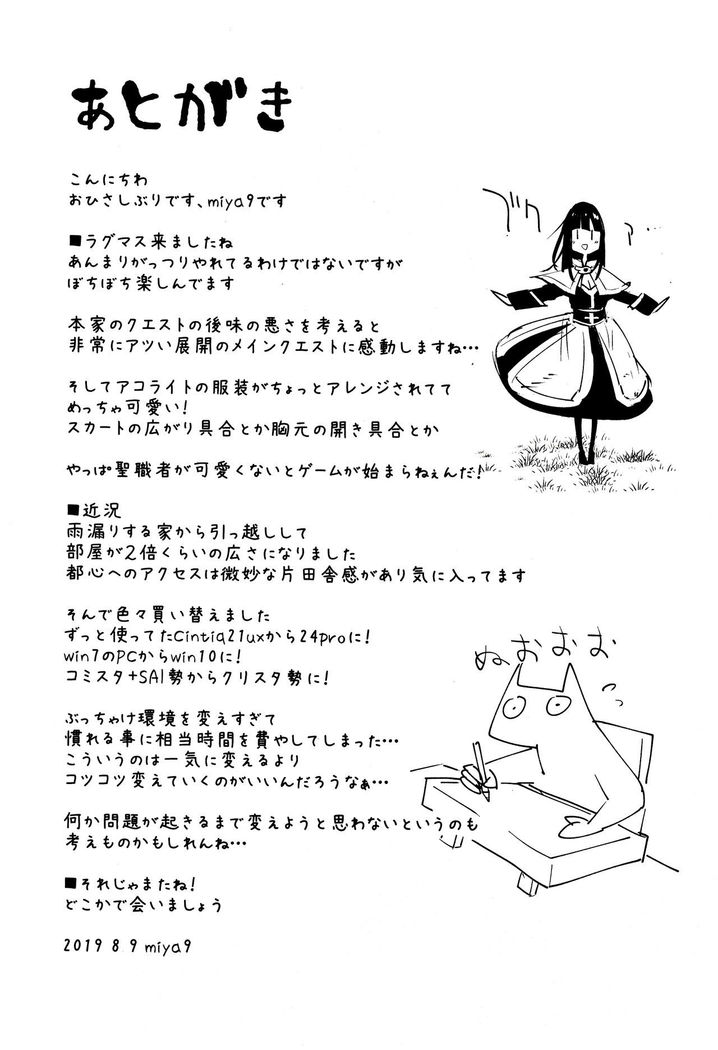 あとがき
こんにちわ
おひさしぶりです、miya9です
■ラグマス来ましたね
あんまりがっつりやれてるわけではないですが
ぼちぼち楽しんでます
本家のクエストの後味の悪さを考えると
非常にアツい展開のメインクエストに感動しますね…
そしてアコライトの服装がちょっとアレンジされてて
めっちゃ可愛い!
スカートの広がり具合とか胸元の開き具合とか
やっぱ聖職者が可愛くないとゲームが始まらねぇんだ!
■近況
雨漏りする家から引っ越しして
部屋が2倍くらいの広さになりました
都心へのアクセスは微妙な片田舎感があり気に入ってます
そんで色々買い替えました
ずっと使ってたCintiq21uxから24proに!
win7のPCからwin10に!
コミスタ+SAI勢からクリスタ勢に!
ぶっちゃけ環境を変えすぎて
慣れる事に相当時間を費やしてしまった…
こういうのは一気に変えるより
コツコツ変えていくのがいいんだろうなぁ…
何か問題が起きるまで変えようと思わないというのも
考えものかもしれんね…
■それじゃまたね!
どこかで会いましょう
2019 8 9 miya9
ぬおおお